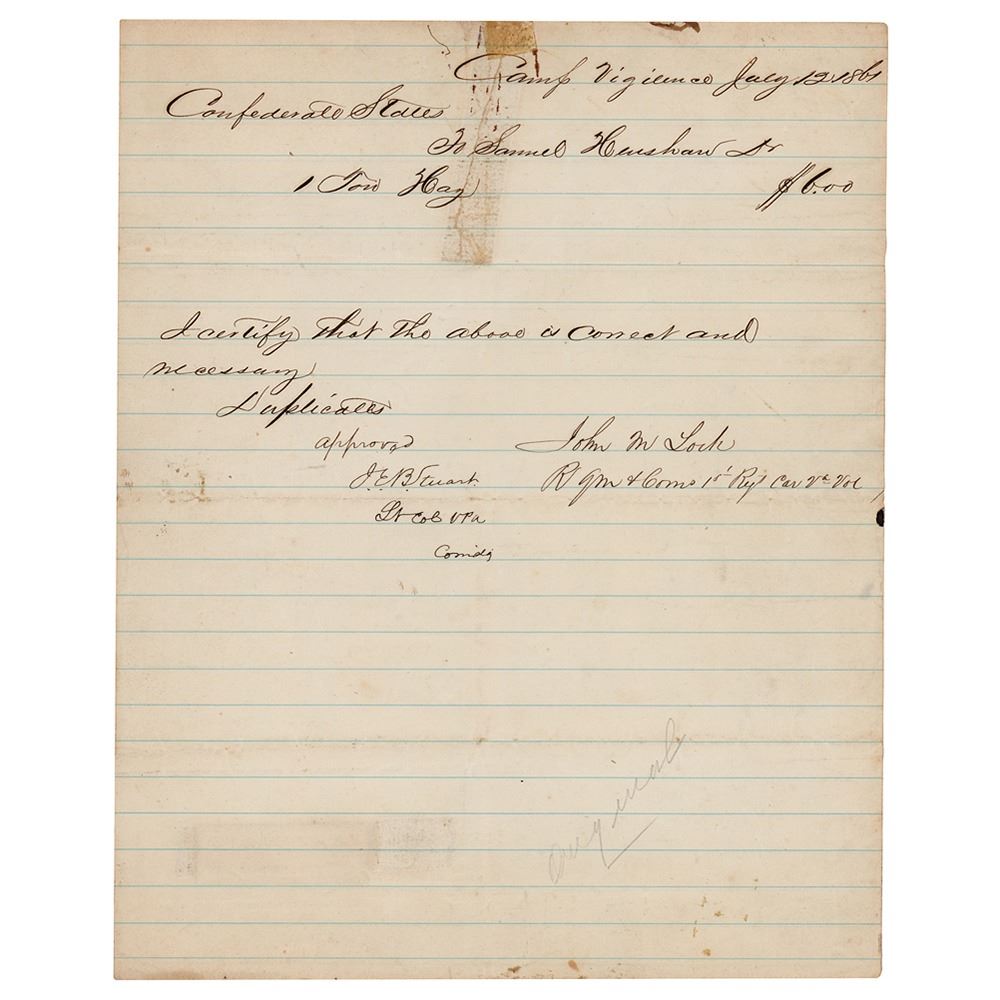 Camp Vigilence July 12 1861
Confederate States
To Samuel Henshaw Dr
1 Ton Hay $6.00
I certify that the above is correct and
necessary
Duplicates
approved
John M Lock
J.E.B. Stuart
R Qm & Coms 1st Regt Cav Va Vol
Lt Col
Comdg
Original